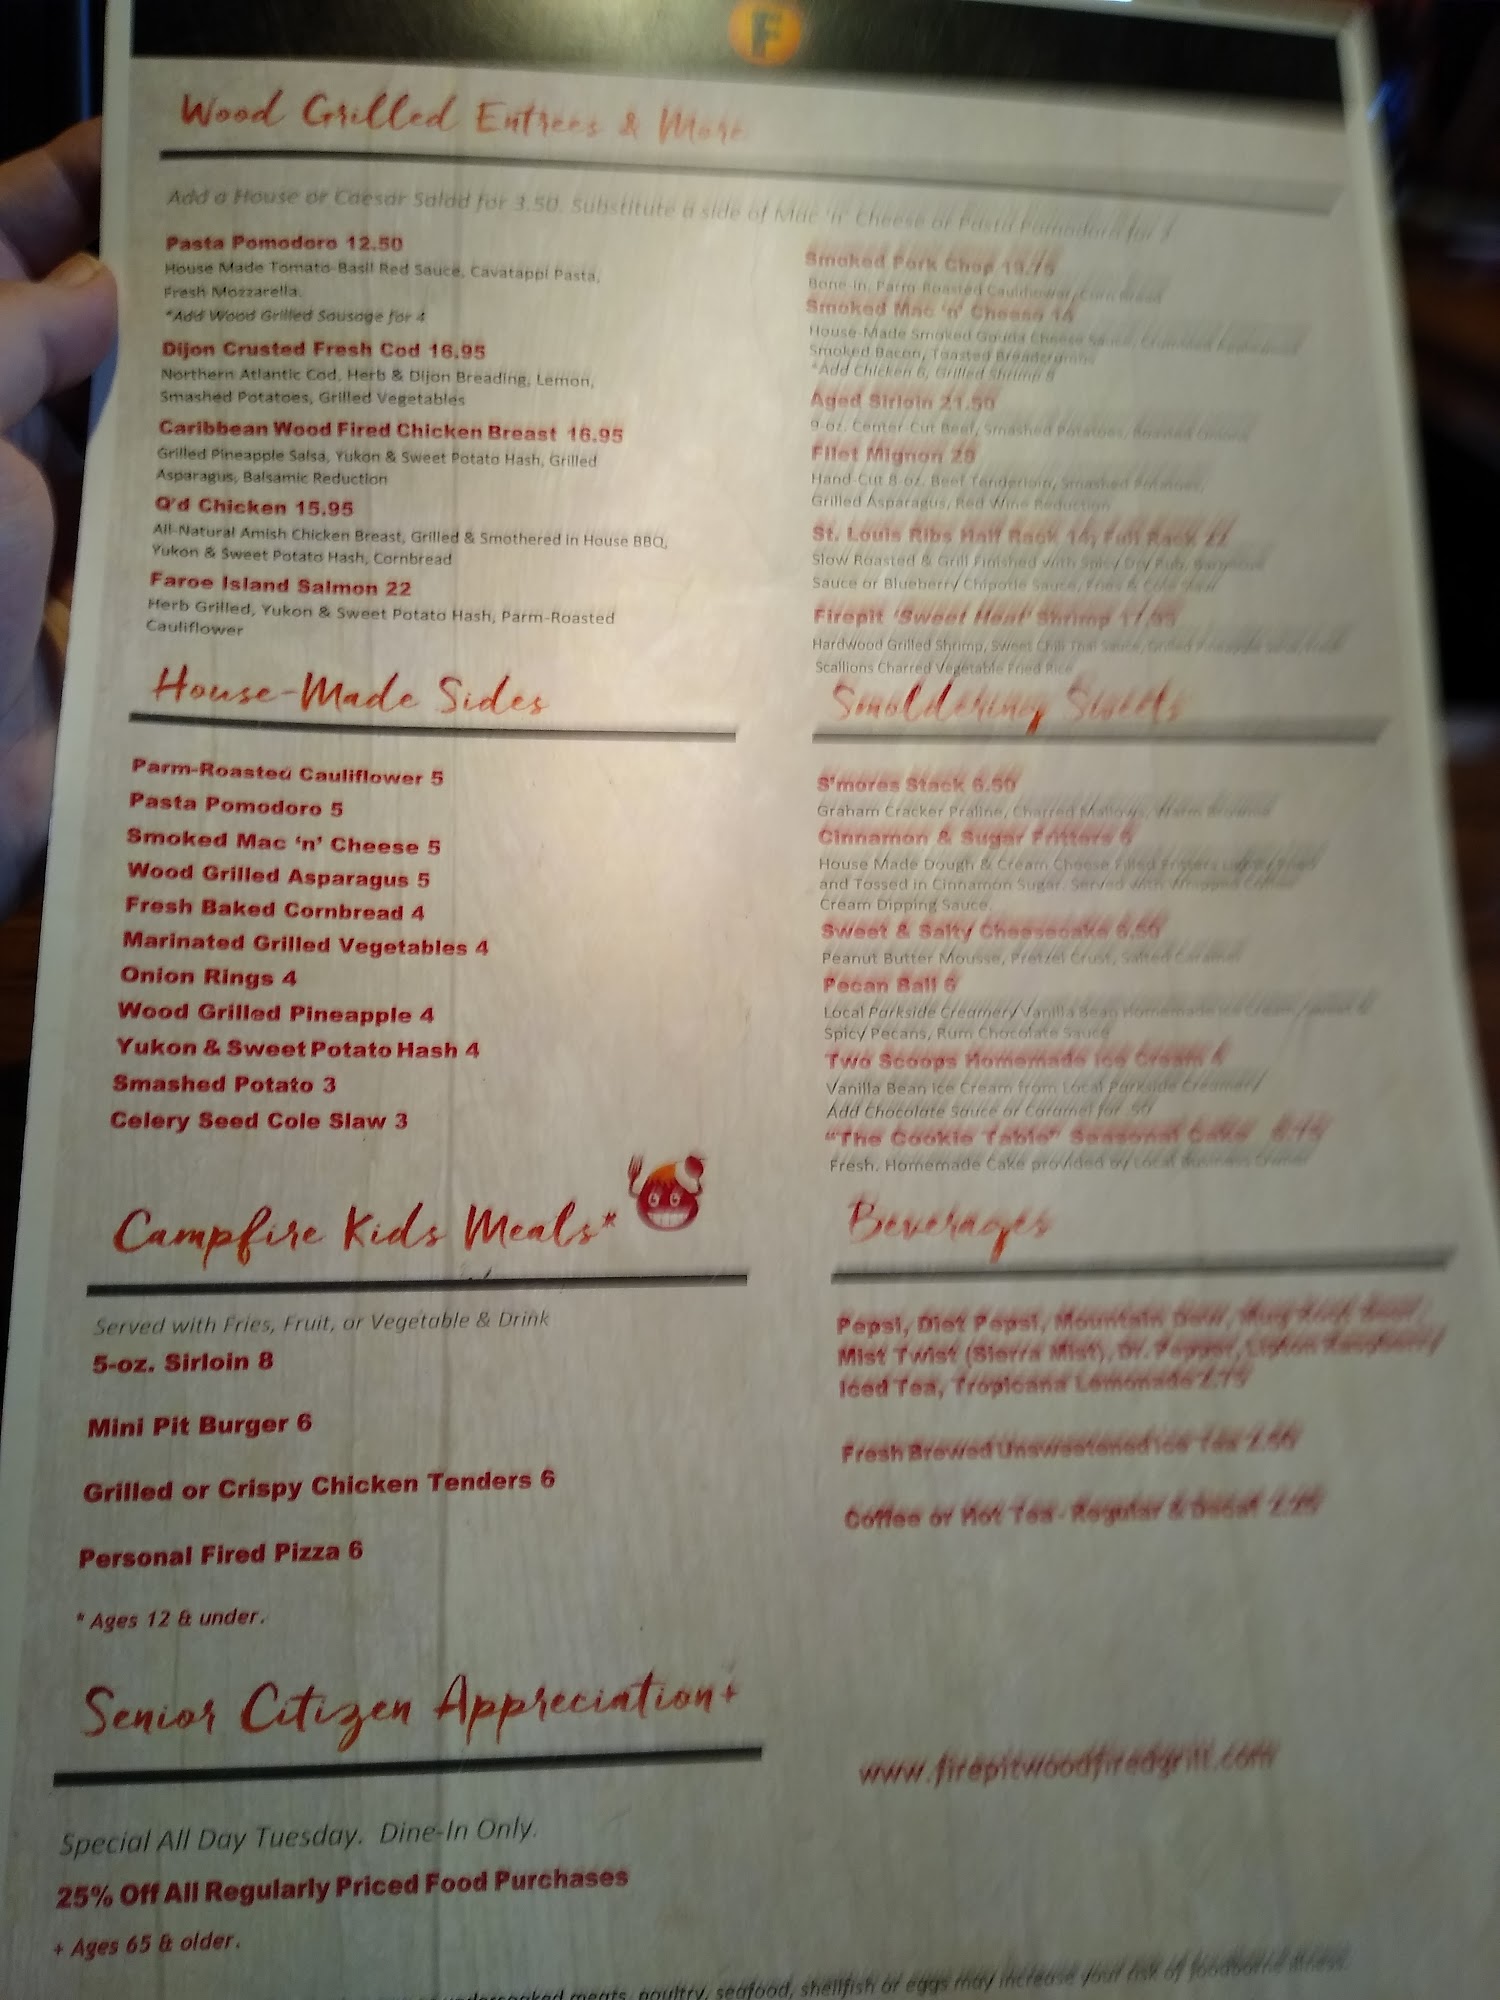 F
Wood Grilled Entrees & More
Add a House or Caesar Salad for 3.50. Substitute a side of Mac 'n' Cheese or Pasta Pomodoro for
Pasta Pomodoro 12.50
House Made Tomato-Basil Red Sauce, Cavatappi Pasta,
Fresh Mozzarella.
*Add Wood Grilled Sausage for 4
Dijon Crusted Fresh Cod 16.95
Northern Atlantic Cod, Herb & Dijon Breading, Lemon,
Smashed Potatoes, Grilled Vegetables
Caribbean Wood Fired Chicken Breast 16.95
Grilled Pineapple Salsa, Yukon & Sweet Potato Hash, Grilled
Asparagus, Balsamic Reduction
Q'd Chicken 15.95
All-Natural Amish Chicken Breast, Grilled & Smothered in House BBQ,
Yukon & Sweet Potato Hash, Cornbread
Faroe Island Salmon 22
Herb Grilled, Yukon & Sweet Potato Hash, Parm-Roasted
Cauliflower
Smoked Pork Chop
Bone-in, Parm-Roasted Cauliflower, Corn Bread
Smoked Mac 'n' Cheese 14
House-Made Smoked Gouda Cheese Sauce, Crumbled Applewood
Smoked Bacon, Toasted Breadcrumbs
*Add Chicken 6, Grilled Shrimp 8
Aged Sirloin 21.50
9 oz. Center-Cut Beef, Smashed Potatoes, Roasted
Filet Mignon 29
Hand-Cut 8 oz. Beef Tenderloin, Smashed Potatoes,
Grilled Asparagus, Red Wine Reduction
St. Louis Ribs Half Rack 14, Full Rack 22
Slow Roasted & Grill Finished with Spicy Dry Rub, Barbecue
Sauce or Blueberry Chipotle Sauce, Fries & Cole Slaw
Firepit 'Sweet Heat' Shrimp 17.95
Hardwood Grilled Shrimp, Sweet Chili Thai Sauce, Grilled Pineapple Salsa, Fresh
Scallions Charred Vegetable Fried Rice
House-Made Sides
Parm-Roasted Cauliflower 5
Pasta Pomodoro 5
Smoked Mac 'n' Cheese 5
Wood Grilled Asparagus 5
Fresh Baked Cornbread 4
Marinated Grilled Vegetables 4
Onion Rings 4
Wood Grilled Pineapple 4
Yukon & Sweet Potato Hash 4
Smashed Potato 3
Celery Seed Cole Slaw 3
Smoldering Sweets
S'mores Stack 6.50
Graham Cracker Praline, Charred Mallows, Warm Brownie
Cinnamon & Sugar Fritters 6
House Made Dough & Cream Cheese Filled Fritters Lightly Fried
and Tossed in Cinnamon Sugar. Served with Whipped Coffee
Cream Dipping Sauce.
Sweet & Salty Cheesecake 6.50
Peanut Butter Mousse, Pretzel Crust, Salted Caramel
Pecan Ball 6
Local Parkside Creamery Vanilla Bean Homemade Ice Cream, Sweet &
Spicy Pecans, Rum Chocolate Sauce
Two Scoops Homemade Ice Cream
Vanilla Bean Ice Cream from Local Parkside Creamery
Add Chocolate Sauce or Caramel for .50
"The Cookie Table" Seasonal Cake
Fresh, Homemade Cake provided by Local Business Owner
Campfire Kids Meals*
Served with Fries, Fruit, or Vegetable & Drink
5-oz. Sirloin 8
Mini Pit Burger 6
Grilled or Crispy Chicken Tenders 6
Personal Fired Pizza 6
* Ages 12 & under.
Beverages
Pepsi, Diet Pepsi, Mountain Dew, Mug Root Beer,
Mist Twist (Sierra Mist), Dr. Pepper, Lipton Raspberry
Iced Tea, Tropicana Lemonade 2.75
Fresh Brewed Unsweetened Ice Tea 2.50
Coffee or Hot Tea - Regular & Decaf 2.25
Senior Citizen Appreciation+
Special All Day Tuesday. Dine-In Only.
25% Off All Regularly Priced Food Purchases
+ Ages 65 & older.
www.firepitwoodfiredgrill.com
undercooked meats, poultry, seafood, shellfish or eggs may increase your risk of foodborne illness.